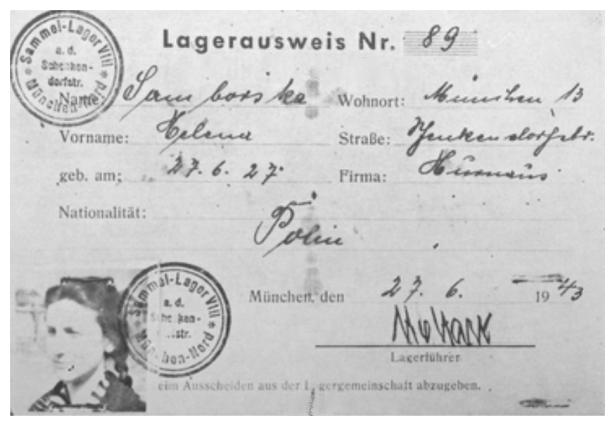 Sammel-Lager VIII
a. d.
Schenken-
dorfstr.
München-Nord
Lagerausweis Nr. 89
Name: Samborska
Wohnort: München 13
Vorname: Helena
Straße: Schenkendorfstr.
geb. am: 27. 6. 27.
Firma:
Nationalität: Polin
Sammel-Lager VIII
a. d.
Schenken-
str.
München-Nord
München, den 27. 6. 1943
Lagerführer
eim Ausscheiden aus der Lagergemeinschaft abzugeben.